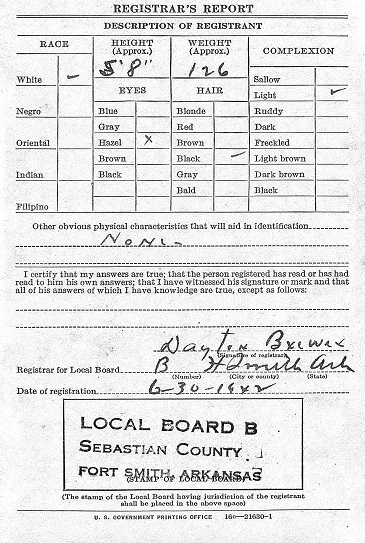 REGISTRAR'S REPORT
DESCRIPTION OF REGISTRANT
RACE HEIGHT (Approx.) WEIGHT (Approx.) COMPLEXION
5'8" 126
White ✓ Sallow
EYES HAIR Light ✓
Negro Blue Blonde Ruddy
Gray Red Dark
Oriental Hazel x Brown Freckled
Brown Black ✓ Light brown
Indian Black Gray Dark brown
Bald Black
Filipino
Other obvious physical characteristics that will aid in identification
None
I certify that my answers are true; that the person registered has read or has had
read to him his own answers; that I have witnessed his signature or mark and that
all of his answers of which I have knowledge are true, except as follows:
Dayton
(Signature of registrar)
Registrar for Local Board B Ft Smith Ark
(Number) (City or county) (State)
Date of registration 6-30-1942
LOCAL BOARD B
SEBASTIAN COUNTY
FORT SMITH, ARKANSAS
(STAMP OF LOCAL BOARD)
(The stamp of the Local Board having jurisdiction of the registrant
shall be placed in the above space)
U. S. GOVERNMENT PRINTING OFFICE 16—21630-1